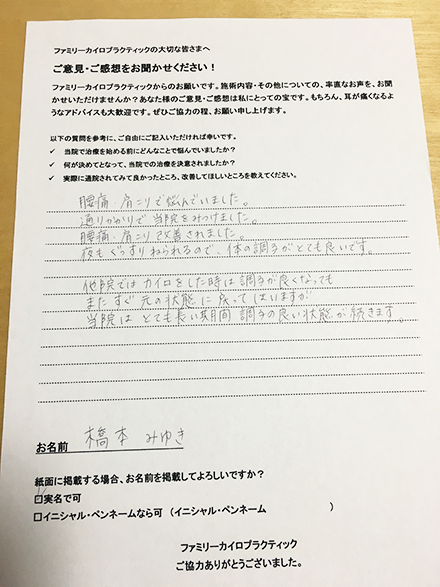 ファミリーカイロプラクティックの大切な皆さまへ
ご意見・ご感想をお聞かせください!
ファミリーカイロプラクティックからのお願いです。施術内容・その他についての、率直なお声を、お聞
かせいただけませんか?あなた様のご意見・ご感想は私にとっての宝です。もちろん、耳が痛くなるよ
うなアドバイスも大歓迎です。ぜひご協力の程、お願い申し上げます。
以下の質問を参考に、ご自由にご記入いただければ幸いです。
✓ 当院で治療を始める前にどんなことで悩んでいましたか?
✓ 何が決めてとなって、当院での治療を決意されましたか?
✓ 実際に通院されてみて良かったところ、改善してほしいところを教えてください。
腰痛・肩こりで悩んでいました。
通りがかりで当院をみつけました。
腰痛・肩こり改善されました。
夜もぐっすりねられるので、体の調子がとても良いです。
他院ではカイロをした時は調子が良くなっても
またすぐ元の状態に戻ってしまいますが
当院はとても長い期間調子の良い状態が続きます。
お名前 橋本 みゆき
紙面に掲載する場合、お名前を掲載してよろしいですか?
☑実名で可
□イニシャル・ペンネームなら可 (イニシャル・ペンネーム )
ファミリーカイロプラクティック
ご協力ありがとうございました。